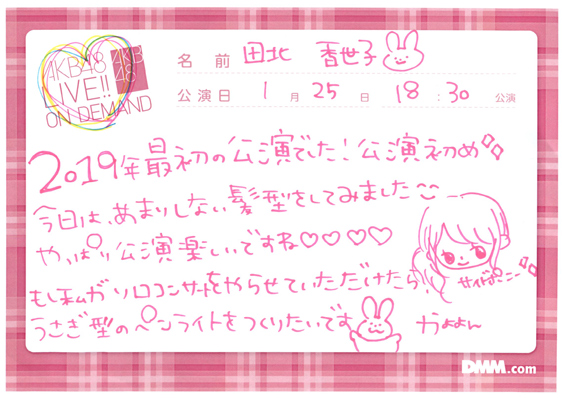 AKB48
LIVE!!
ON DEMAND
AKB
48
名前 田北 香世子
公演日 1月25日 18:30公演
2019年最初の公演でした!公演初め
今日は、あまりしない髪型をしてみました
やっぱり公演楽しいですね♡♡♡♡
サイドポニー
もし私がソロコンサートをやらせていただけたら、
うさぎ型のペンライトをつくりたいです
かよよん
DMM.com